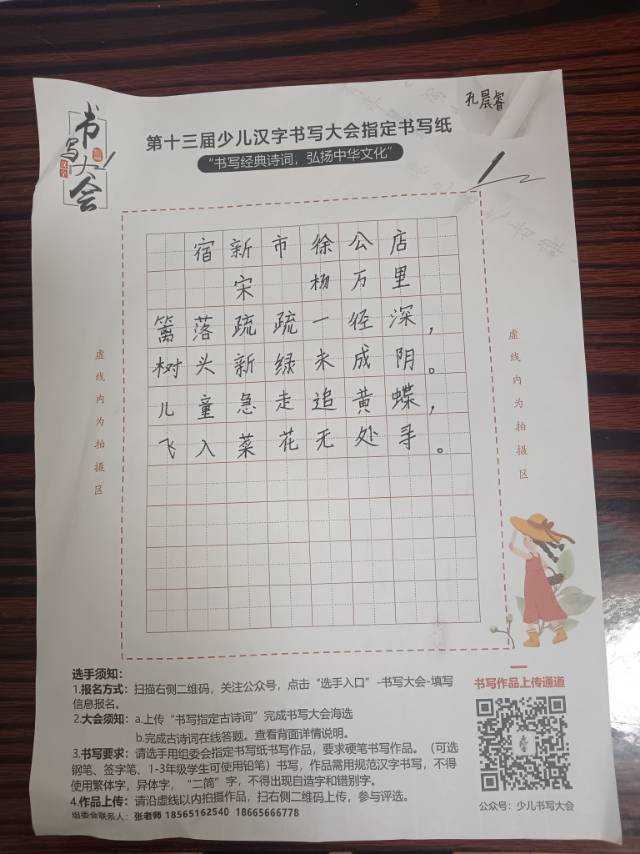 书写大会
汉字
孔晨睿
第十三届少儿汉字书写大会指定书写纸
“书写经典诗词，弘扬中华文化”
1
宿新市徐公店
宋 杨万里
篱落疏疏一径深，
树头新绿未成阴。
儿童急走追黄蝶，
飞入菜花无处寻。
虚线内为拍摄区
虚线内为拍摄区
选手须知：
1.报名方式：扫描右侧二维码，关注公众号，点击“选手入口”-书写大会-填写
信息报名。
2.大会须知：a.上传“书写指定古诗词”完成书写大会海选
b.完成古诗词在线答题。查看背面详情说明。
3.书写要求：请选手用组委会指定书写纸书写作品，要求硬笔书写作品。（可选
钢笔、签字笔，1-3年级学生可使用铅笔）书写，作品需用规范汉字书写，不得
使用繁体字，异体字，“二简”字，不得出现自造字和错别字。
4.作品上传：请沿虚线以内拍摄作品，扫右侧二维码上传，参与评选。
组委会联系人：张老师 18565162540 18665666778
书写作品上传通道
公众号：少儿书写大会